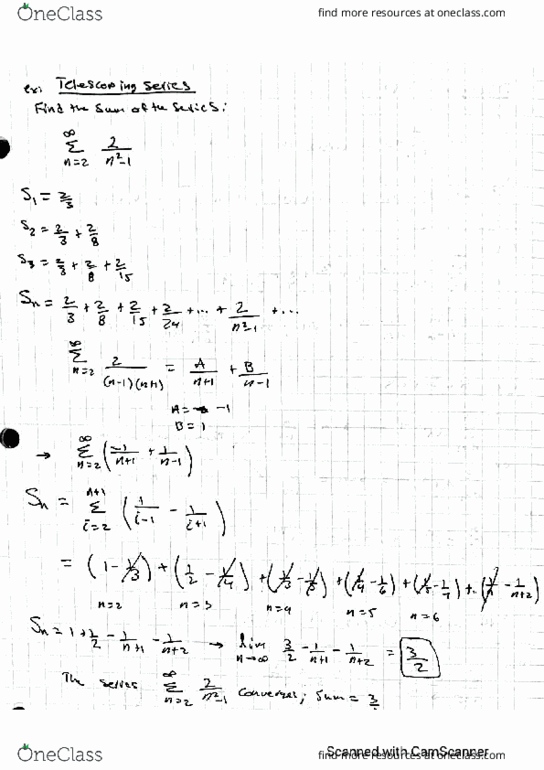 OneClass find more resources at oneclass.com
ex: Telescoping series
Find the sum of the series:
∞ Σ n=2 2/(n²-1)
S₁ = 2/3
S₂ = 2/3 + 2/8
S₃ = 2/3 + 2/8 + 2/15
Sₙ = 2/3 + 2/8 + 2/15 + 2/24 + ... + 2/(n²-1) + ...
∞ Σ n=2 2/((n-1)(n+1)) = A/(n+1) + B/(n-1)
A = -1
B = 1
→ ∞ Σ n=2 (-1/(n+1) + 1/(n-1))
Sₙ = n+1 Σ i=2 (1/(i-1) - 1/(i+1))
= (1 - 1/3) + (1/2 - 1/4) + (1/3 - 1/5) + (1/4 - 1/6) + (1/5 - 1/7) + .. (1/n - 1/(n+2))
n=2 n=3 n=4 n=5 n=6
Sₙ = 1 + 1/2 - 1/(n+1) - 1/(n+2) → lim n→∞ 3/2 - 1/(n+1) - 1/(n+2) = 3/2
The series ∞ Σ n=2 2/(n²-1) converges; sum = 3/2
Scanned with CamScanner
OneClass find more resources at oneclass.com